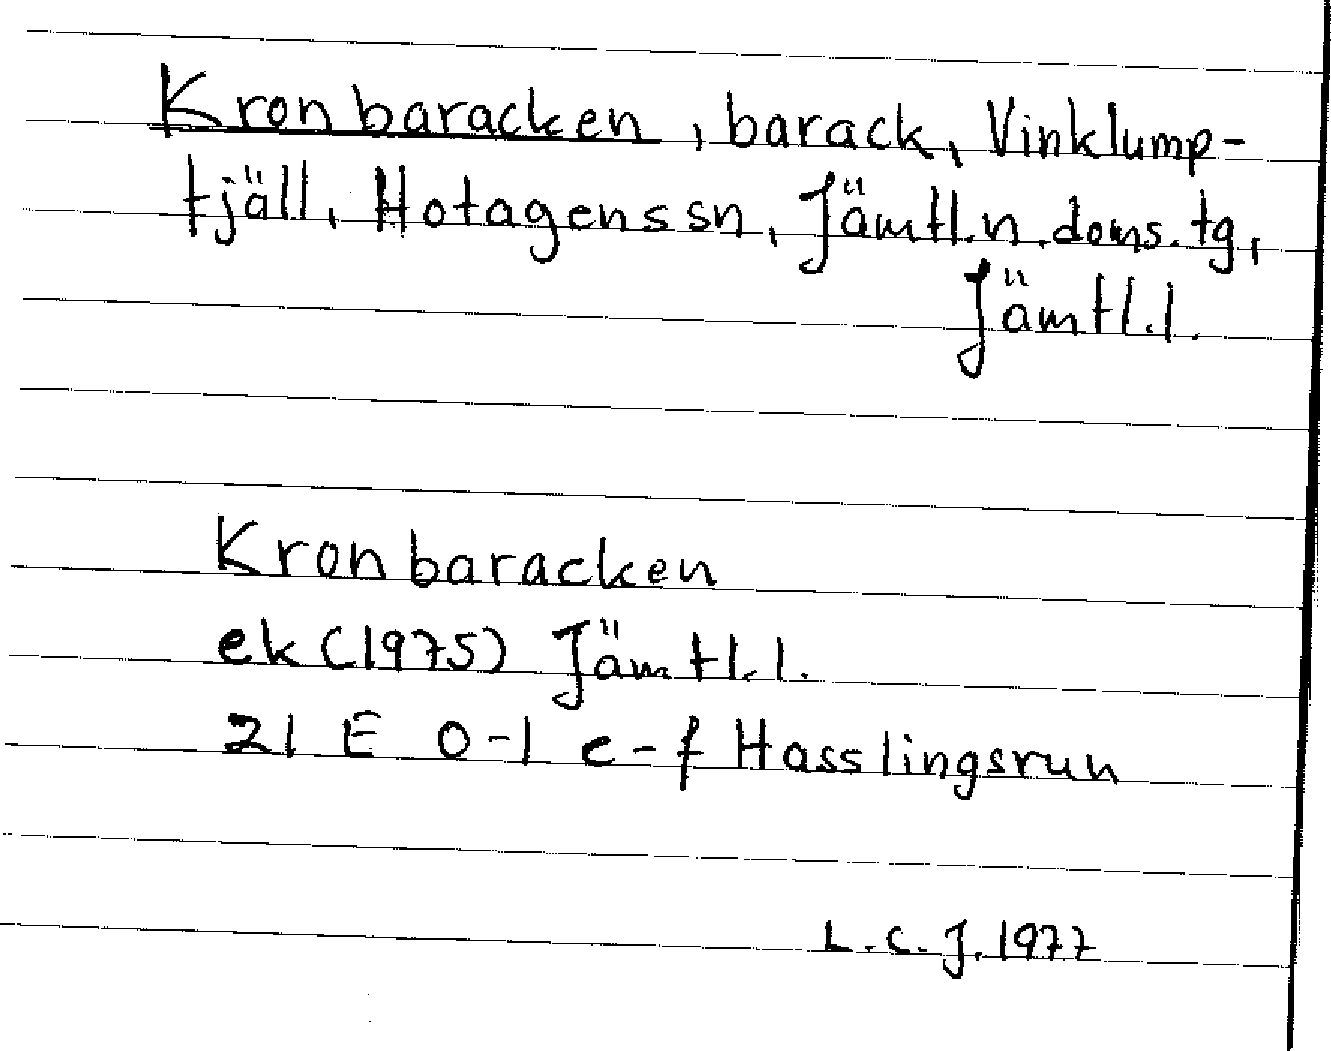 Kronbaracken, barack, Vinklump-
fjäll, Hotagens sn, Jämtl. n. doms. tg,
Jämtl. l.
Kronbaracken
ek (1975) Jämtl. l.
21 E 0-1 e-f Hasslingsrun
L.C.J. 1977